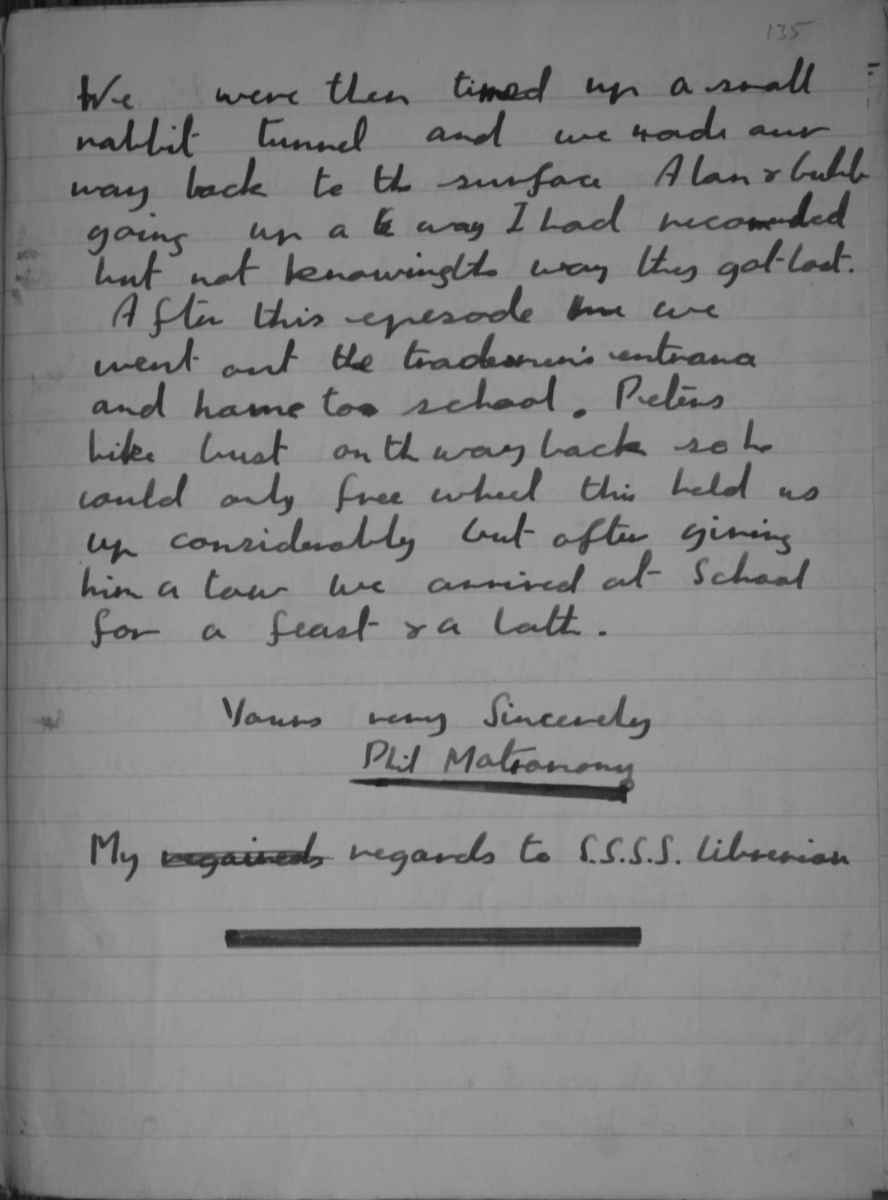 135
We were then timed up a small
rabbit tunnel and we made our
way back to th surface Alan &
going up a way I had recomended
but not knowing th way they got lost.
After this epesode we
went out the trademen's entrana
and hame too school. Peters
bike bust on th way back so h
could only free wheel this held us
up considerably but after giving
him a tow we arrived at School
for a feast & a bath.
Yours very Sincerely
Phil Matronony
My regards to S.S.S.S. librerian